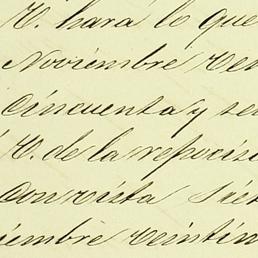 V. hará lo que
Noviembre
cincuenta y se
V. de la
con vista siet
iembre veintin